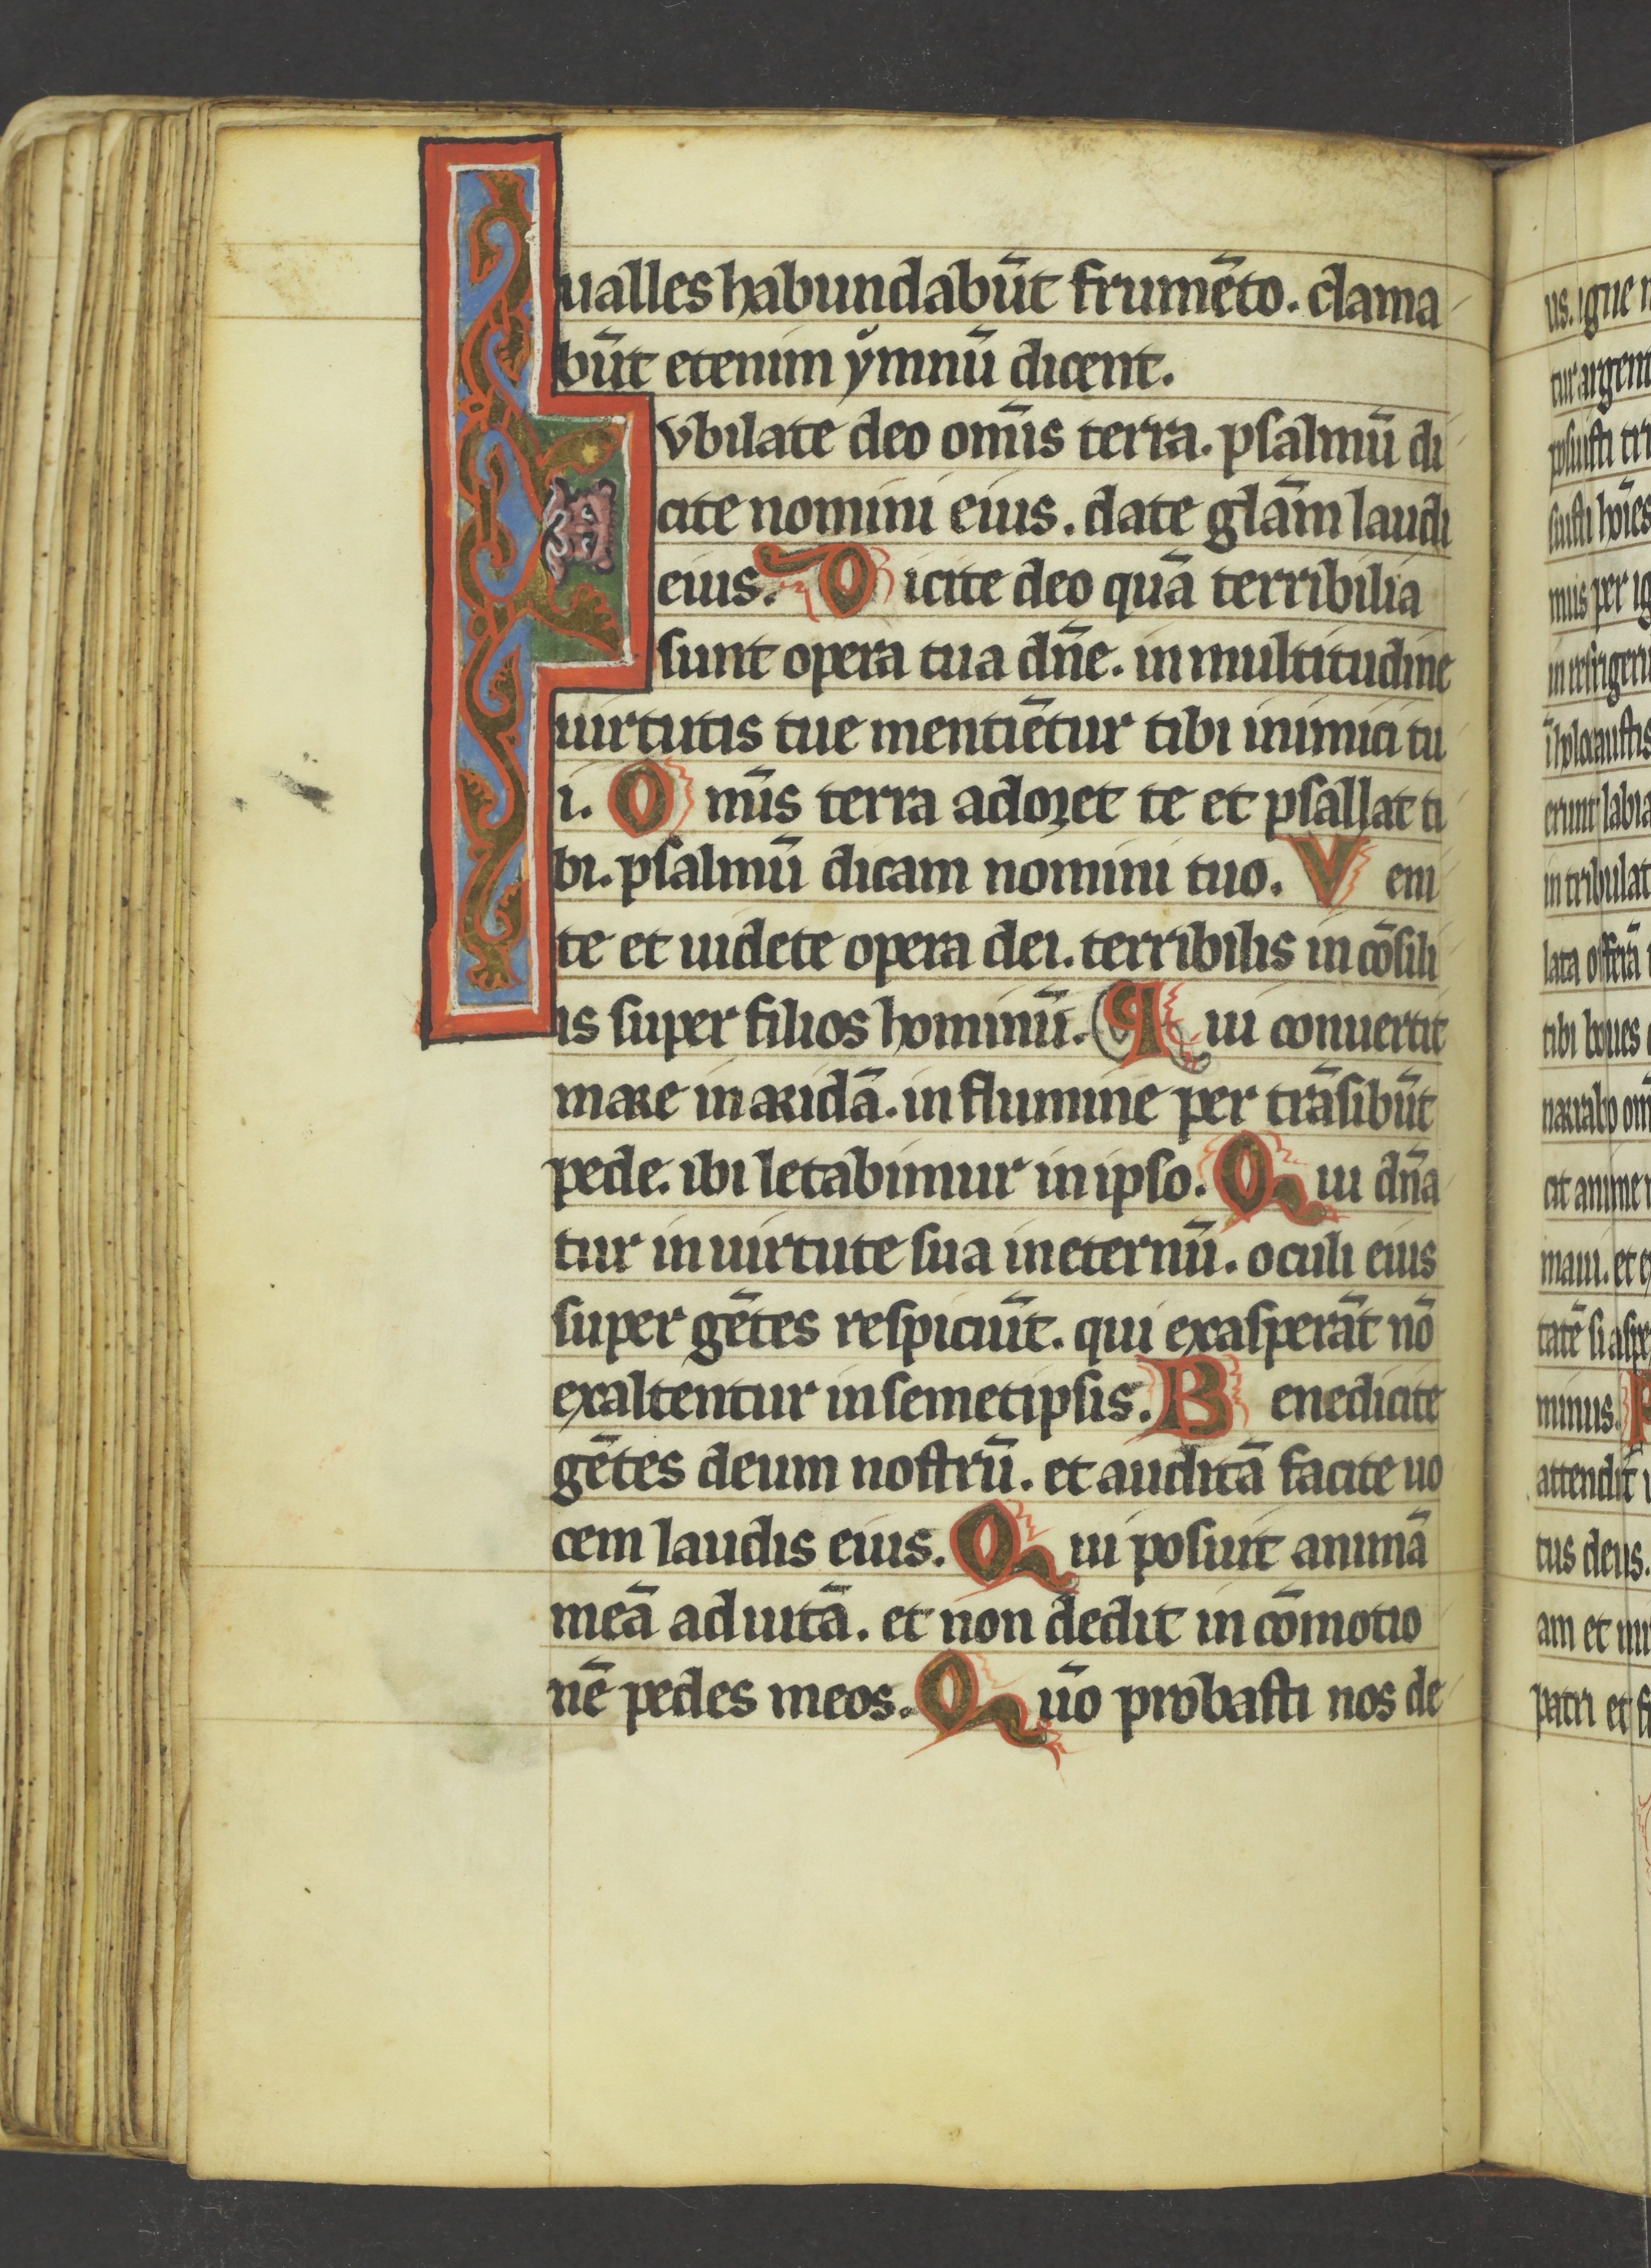 ualles habundabūt frumēto. clama
būt etenim ymnū dicent.
Ivbilate deo om̄s terra. psalmū di
cite nomini eius. date glām laudi
eius. Dicite deo quā terribilia
sunt opera tua dn̄e. in multitudine
uirtutis tue mentiētur tibi inimici tu
i. Om̄s terra adoret te et psallat ti
bi. psalmū dicam nomini tuo. Veni
te et uidete opera dei. terribilis in cōsili
is super filios hominū. Qui conuertit
mare in aridā. in flumine per trāsibūt
pede. ibi letabimur in ipso. Qui dn̄a
tur in uirtute sua in eternū. oculi eius
super gētes respiciūt. qui exasperāt nō
exaltentur in semetipsis. Benedicite
gētes deum nostrū. et auditā facite uo
cem laudis eius. Qui posuit animā
meā ad uitā. et non dedit in cōmotio
nē pedes meos. Qūo probasti nos de
us. igne
tur argent
posuisti tri
suisti hōies
mus per ig
in refrigeri
ī holocaustis
erunt labia
in tribulat
lata offerā
tibi boues
narrabo om̄
cit anime
maui. et e
tatē si aspe
minus.
attendit
tus deus.
am et mi
patri et fi